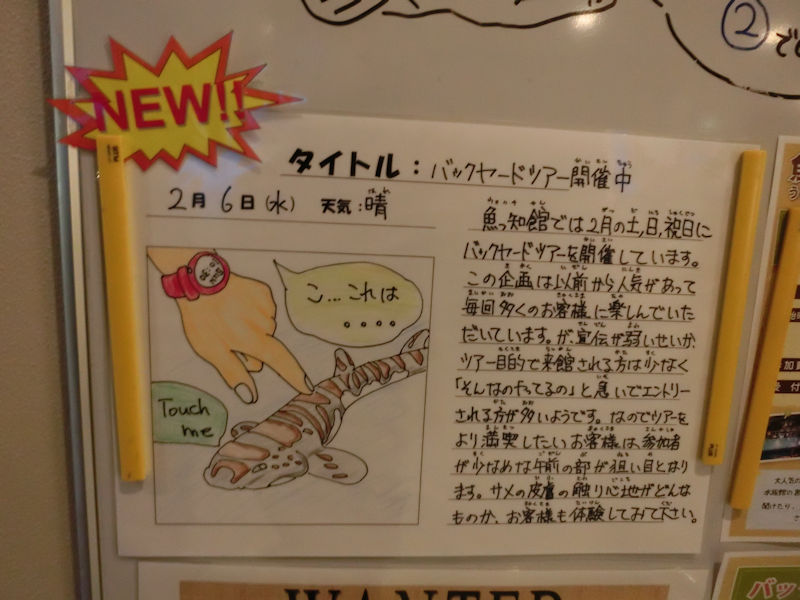 ②
で
NEW!!
タイトル：バックヤードツアー開催中
2月6日(水) 天気：晴
魚っ知館では2月の土,日,祝日に
バックヤードツアーを開催しています。
この企画は以前から人気があって
毎回多くのお客様に楽しんでいた
だいています。が、宣伝が弱いせいか、
ツアー目的で来館される方は少なく
「そんなのやってるの」と急いでエントリー
される方が多いようです。なのでツアーを
より満喫したいお客様は、参加者
が少なめな午前の部が狙い目となり
ます。サメの皮膚の触り心地がどんな
ものか、お客様も体験してみて下さい。
こ…これは
。。。。
Touch
me
WANTED
バッ